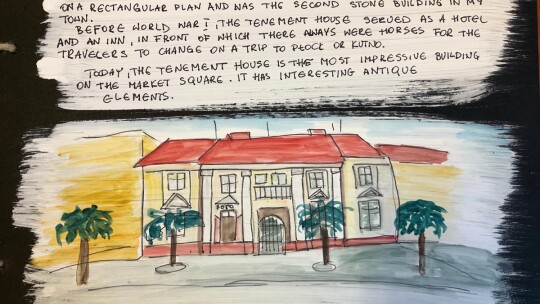 ON A RECTANGULAR PLAN AND WAS THE SECOND STONE BUILDING IN MY
TOWN.
BEFORE WORLD WAR I, THE TENEMENT HOUSE SERVED AS A HOTEL
AND AN INN, IN FRONT OF WHICH THERE ALWAYS WERE HORSES FOR THE
TRAVELERS TO CHANGE ON A TRIP TO PŁOCK OR KUTNO.
TODAY, THE TENEMENT HOUSE IS THE MOST IMPRESSIVE BUILDING
ON THE MARKET SQUARE. IT HAS INTERESTING ANTIQUE
ELEMENTS.